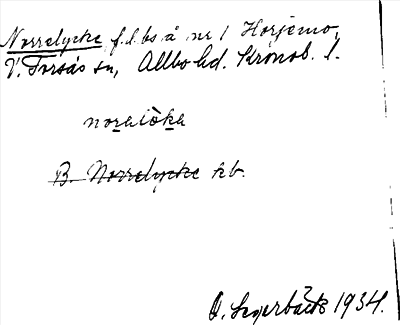 Norrelycke f.d. bs å nr 1 Horjemo,
V. Torsås sn, Allbo hd. Kronob. l.
noralöka
B. Norrelycke kb.
O. Lagerbäck 1934.